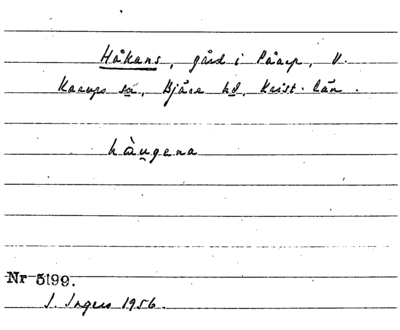 Håkans, gård i Påarp, V.
Karups sn, Bjäre hd, Krist. län.
hàu̯gena
Nr 5199.
I. Ingers 1956.